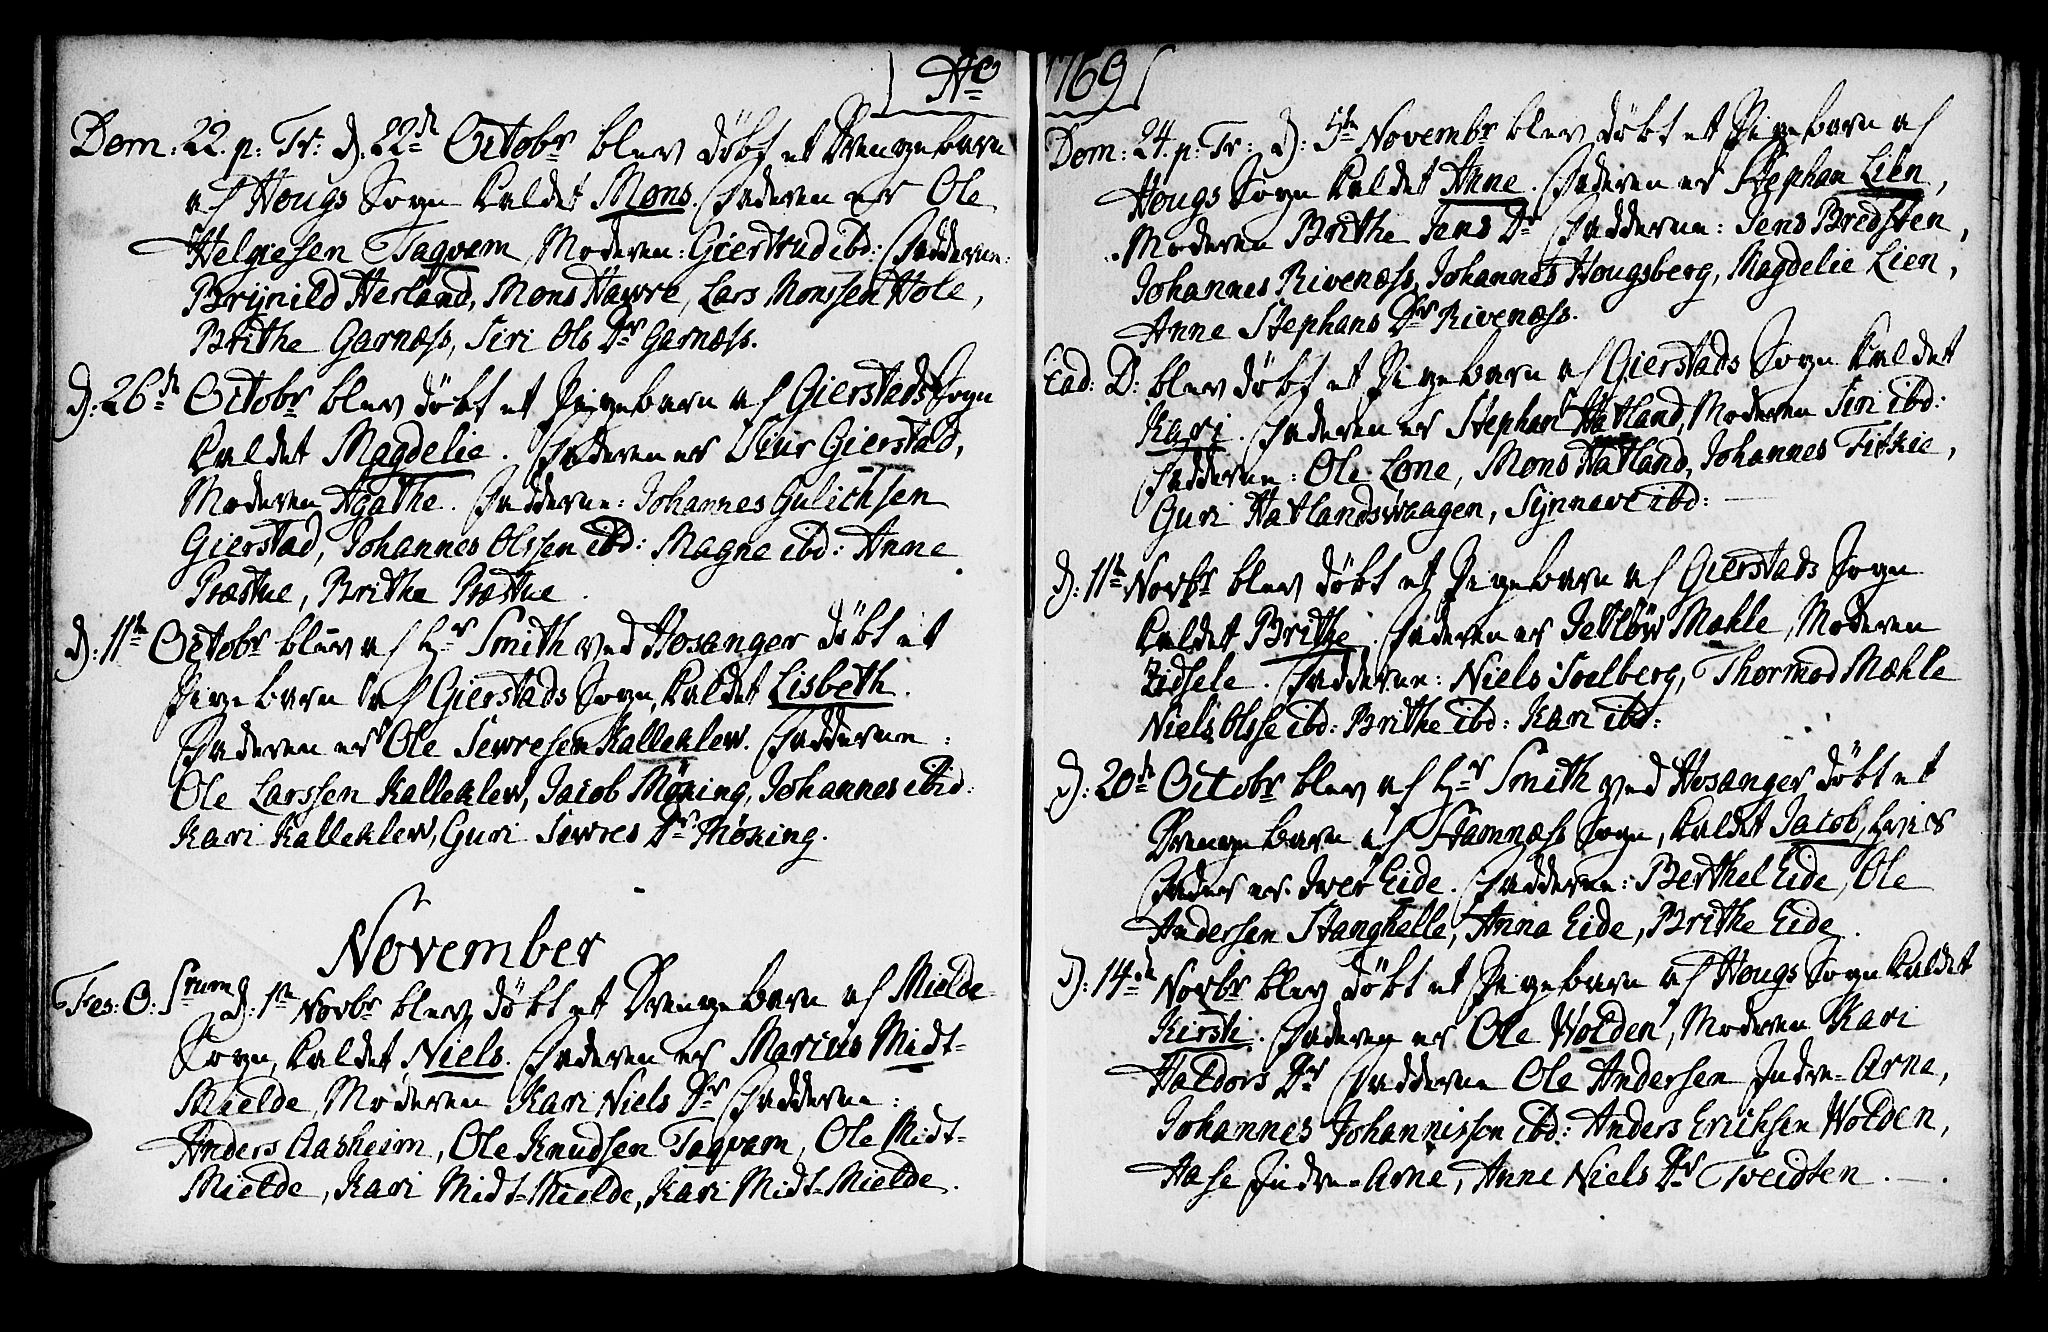 Ao
Dom: 22. p: Tr: d. 22de Octobr blev döbt et Drengebarn
af Hougs Sogn kaldet Mons. Faderen er Ole
Helgesen Tagvam, Moderen: Giertrud ibd: Fadderne:
Brÿnild Herland, Mons Hawre, Lars Monssen Hole,
Brithe Garnæss, Siri Ols Dr Garnæss.
d: 26de Octobr blev döbt et Pigebarn af Gierstads Sogn
kaldet Magdelie. Faderen er Siur Gierstad,
Moderen Agathe. Fadderne: Johannes Gulichsen
Gierstad, Johannes Olssen ibd: Magne ibd: Anne
Præstue, Brithe Præstue.
d: 11te Octobr blev af Hr Smith ved Hosanger döbt et
Pigebarn af Gierstads Sogn, kaldet Lisbeth.
Faderen er Ole Sewresen Kalleklew. Fadderne:
Ole Larssen Kalleklew, Jacob Möking, Johannes ibid:
Kari Kalleklew, Guri Sewres Dr Möking.
November
Fes: O: Strum d: 1te Novbr blev döbt et Drengebarn af Mielde
Sogn, kaldet Niels. Faderen er Marius Midt-
Mielde, Moderen Kari Niels Dr Fadderne:
Anders Aasheim, Ole Knudsen Tagvam, Ole Midt-
Mielde, Kari Midt-Mielde, Kari Midt-Mielde.
1769
Dom: 24. p: Tr: d: 5te Novembr blev döbt et Pigebarn af
Hougs Sogn kaldet Anne. Faderen er Stephan Lien,
Moderen Brithe Jens Dr Fadderne: Jens Bredsten,
Johannes Rivenæss, Johannes Hougsberg, Magdelie Lien,
Anne Stephans Dr Rivenæss.
Ead: D: blev döbt et Pigebarn af Gierstads Sogn kaldet
Kari. Faderen er Stephan Hatland, Moderen Siri ibd:
Fadderne: Ole Lone, Mons Hatland, Johannes Titkie,
Guri Hatlandswaagen, Synneve ibd:
d: 11te Novbr blev döbt et Pigebarn af Gierstads Sogn
kaldet Brithe. Faderen er Detlöw Mæhle, Moderen
Zidsele. Fadderne: Niels Soelberg, Thormod Mæhle
Niels Olsse ibd: Brithe ibd: Kari ibd:
d: 20de Octobr blev af Hr Smith ved Hosanger döbt et
Drengebarn af Stamnæss Sogn, kaldet Jacob, hvis
Fader er Iver Eide. Fadderne: Berthel Eide, Ole
Andersen Stanghelle, Anna Eide, Brithe Eide.
d: 14de Novbr blev döbt et Pigebarn af Hougs Sogn kaldet
Kirsti. Faderen er Ole Wolden, Moderen Kari
Haldors Dr Fadderne Ole Andersen Indre-Arne,
Johannes Johannissen ibd: Anders Erichsen Wolden,
Aase Indre-Arne, Anne Niels Dr Tveidten.